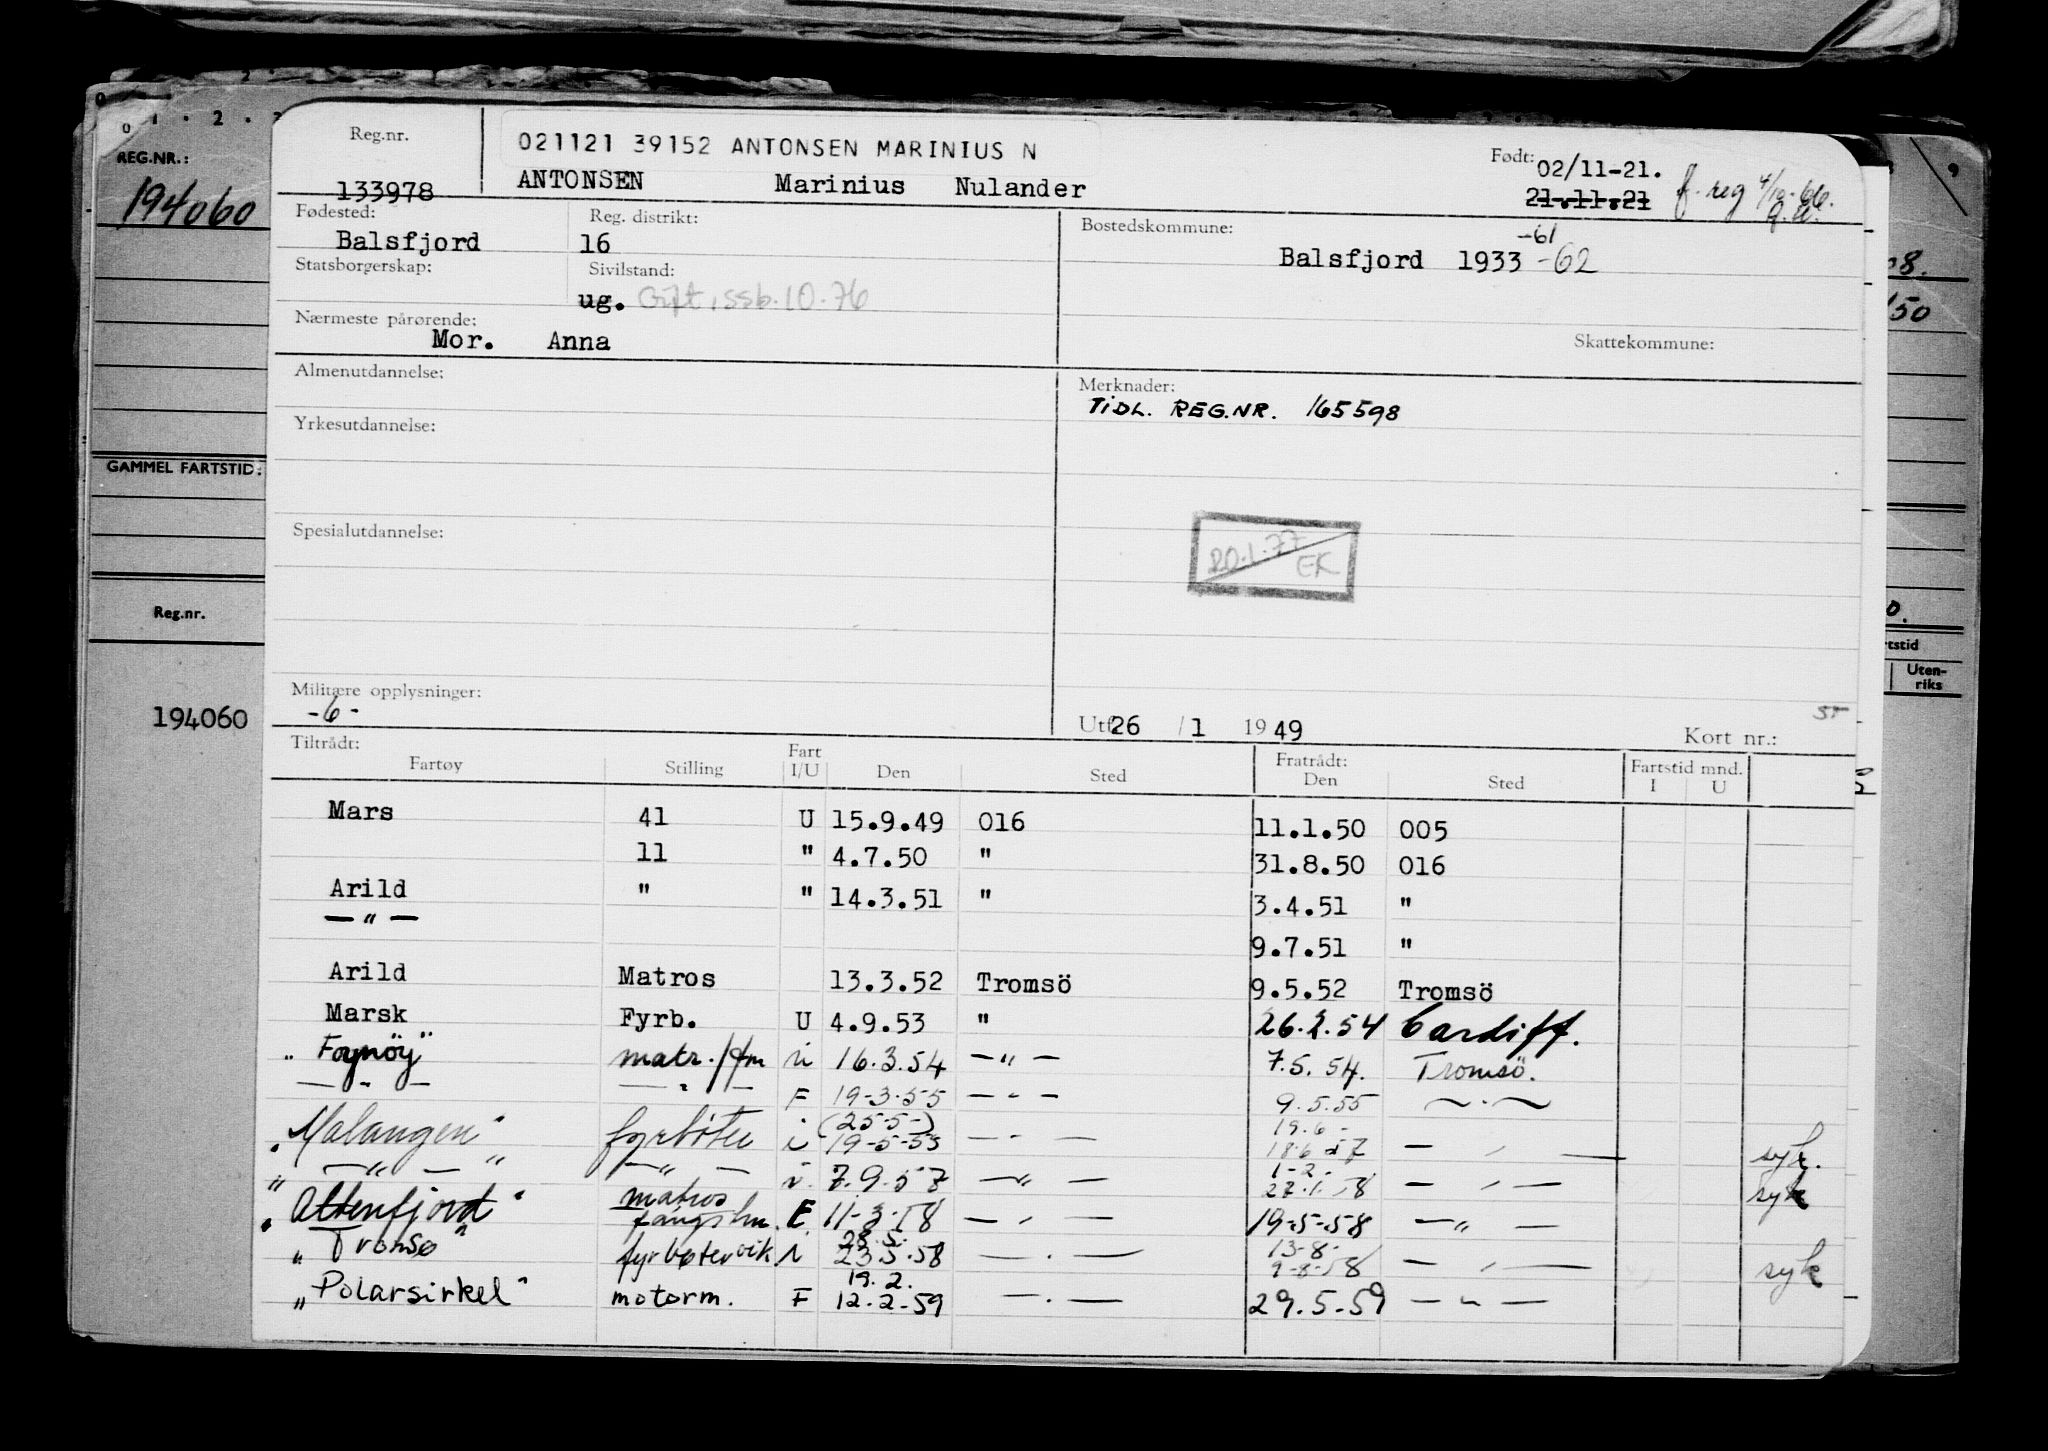 REG.NR.:
194060
GAMMEL FARTSTID:
Reg.nr.
194060
Reg.nr.
133978
021121 39152 ANTONSEN MARINIUS N
ANTONSEN Marinius Nulander
Født: 02/11-21.
21.11.21
f. reg 4/10-66.
Fødested:
Balsfjord
Reg. distrikt:
16
Bostedskommune:
-61
Balsfjord 1933 -62
Statsborgerskap:
Sivilstand:
ug. Gift, ssb. 10.76
Nærmeste pårørende:
Mor. Anna
Skattekommune:
Almenutdannelse:
Merknader:
TIDL. REG.NR. 165598
Yrkesutdannelse:
Spesialutdannelse:
20.1.77
EK
Militære opplysninger:
-6-
Utf. 26 / 1 1949
Kort nr.:
Tiltrådt:
Fartøy Stilling Fart I/U Den Sted Fratrådt: Den Sted Fartstid mnd. I U
Mars 41 U 15.9.49 016 11.1.50 005
11 " 4.7.50 " 31.8.50 016
Arild " " 14.3.51 " 3.4.51 "
— " — 9.7.51 "
Arild Matros 13.3.52 Tromsö 9.5.52 Tromsö
Marsk Fyrb. U 4.9.53 " 26.2.54 Cardiff.
" Fognöy" matr./fm 16.3.54 — " — 7.5.54. Tromsö.
— " — — " — F 19-3-55 — " — 9.5.55 — " —
(25-5-) 19.6-
"Malangen" fyrbøter i 19-5-55 — " — 18.6.57 — " — syk.
1-2-
" — " — " — " — i. 7.9.57 — " — 27.1.58 — " — syk
matros
"Altenfjord" fangstm. F 11-3-58 — " — 19-5-58 — " —
28.5. 13-8-
"Tromsø" fyrbøtervik. i 23.5.58 — " — 9-8-58 — " — syk
19.2.
"Polarsirkel" motorm. F 12.2-59 — " — 29.5.59 — " —
08.
150
0.
rtstid
Uten-
riks